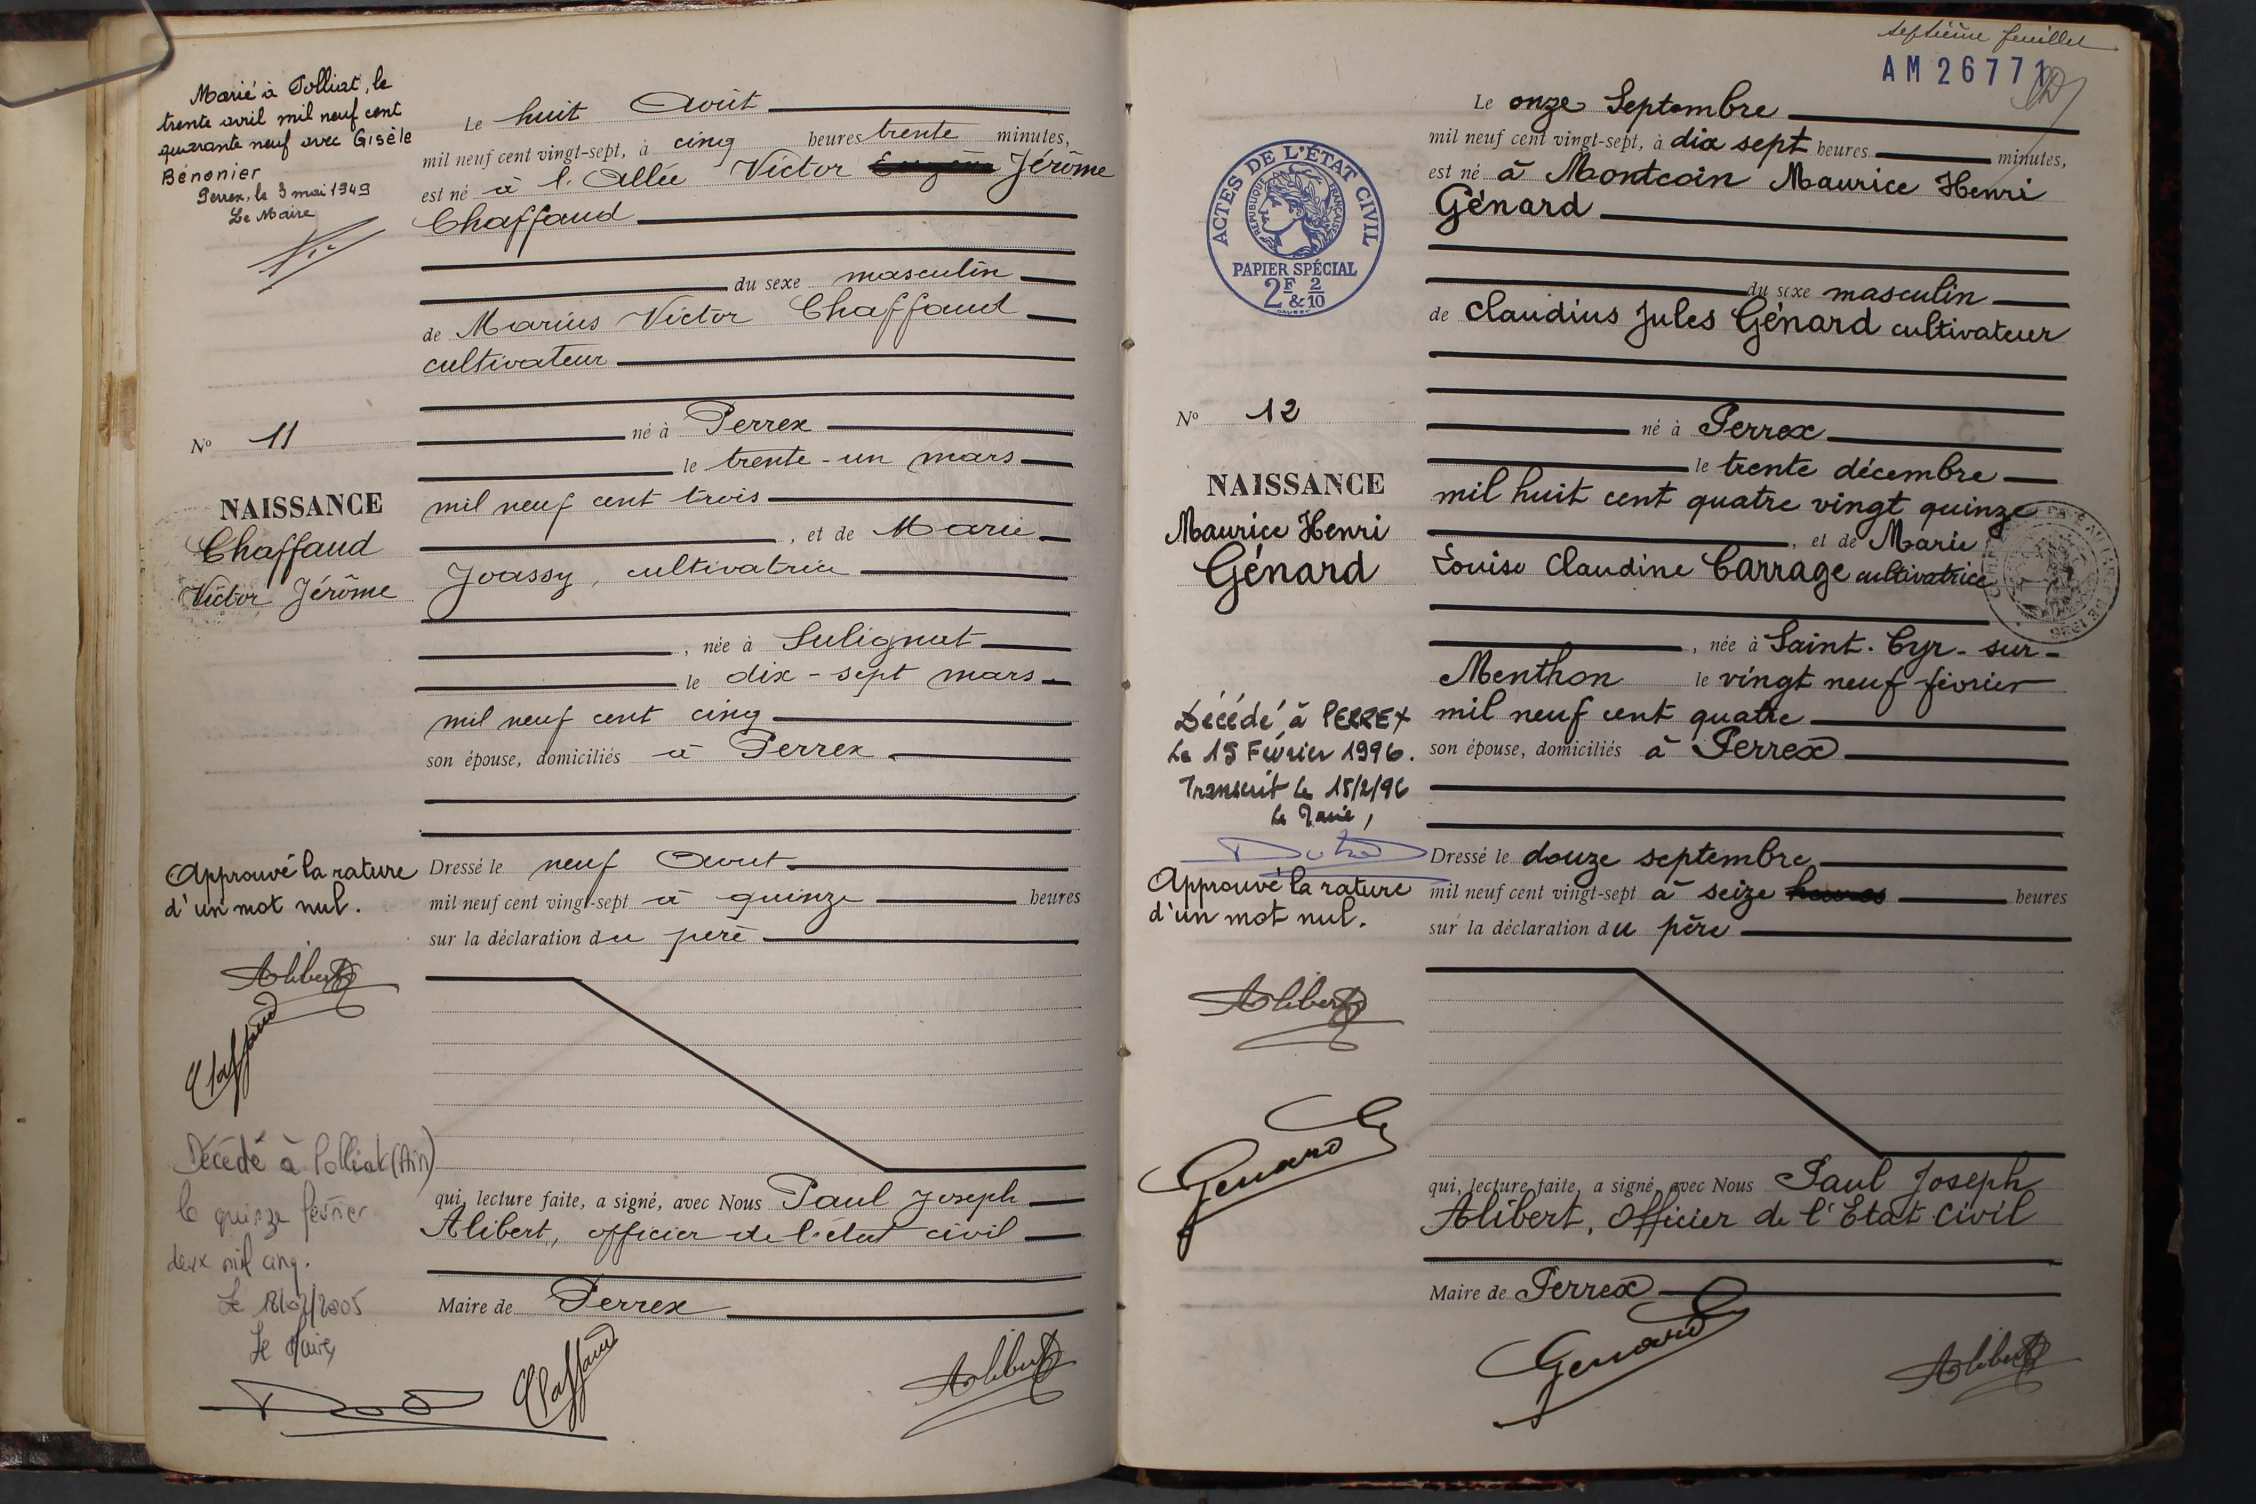 Marié à Polliat, le
trente avril mil neuf cent
quarante neuf avec Gisèle
Bénonier
Perrex, le 3 mai 1949
Le Maire
Le huit Août
mil neuf cent vingt-sept, à cinq heures trente minutes,
est né à l'Allée Victor Jérôme
Chaffaud
du sexe masculin
de Marius Victor Chaffaud
cultivateur
né à Perrex
le trente-un mars
mil neuf cent trois
, et de Marie
Joassy, cultivatrice
, née à Sulignat
le dix-sept mars
mil neuf cent cinq
son épouse, domiciliés à Perrex
N° 11
NAISSANCE
Chaffaud
Victor Jérôme
Approuvé la rature
d'un mot nul.
Alibert
Chaffaud
Dressé le neuf Aout
mil neuf cent vingt-sept à quinze heures
sur la déclaration du père
Décédé à Polliat (Ain)
le quinze février
deux mil cinq.
Le /2005
Le Maire
qui, lecture faite, a signé, avec Nous Paul Joseph
Alibert, officier de l'état civil
Maire de Perrex
Chaffaud
Alibert
septième feuillet
AM 26771
Le onze Septembre
mil neuf cent vingt-sept, à dix sept heures minutes,
est né à Montcoin Maurice Henri
Génard
du sexe masculin
de Claudius Jules Génard cultivateur
né à Perrex
le trente décembre
mil huit cent quatre vingt quinze
, et de Marie
Louise Claudine Carrage cultivatrice
, née à Saint-Cyr-sur-
Menthon le vingt neuf février
mil neuf cent quatre
son épouse, domiciliés à Perrex
ACTES DE L'ÉTAT CIVIL
RÉPUBLIQUE FRANÇAISE
PAPIER SPÉCIAL
2F & 2/10
N° 12
NAISSANCE
Maurice Henri
Génard
Décédé à PERREX
Le 15 Février 1996.
Transcrit le 15/2/96
Le Maire,
Approuvé la rature
d'un mot nul.
Alibert
Genard
Dressé le douze septembre
mil neuf cent vingt-sept à seize heures heures
sur la déclaration du père
qui, lecture faite, a signé, avec Nous Paul Joseph
Alibert, Officier de l'Etat Civil
Maire de Perrex
Genard
Alibert